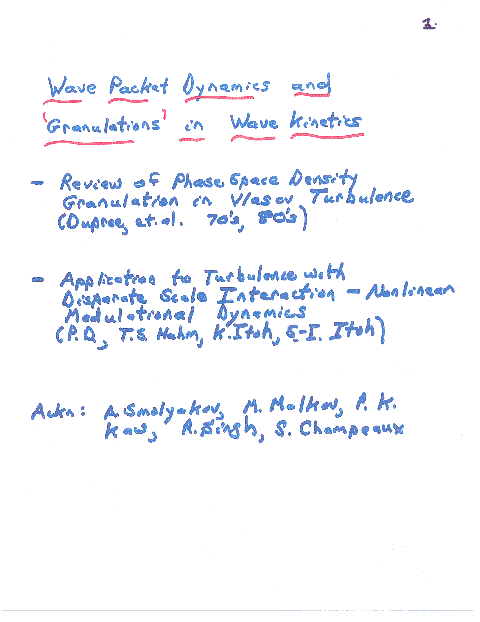 1.
Wave Packet Dynamics and
'Granulations' in Wave Kinetics
- Review of Phase Space Density
Granulation in Vlasov Turbulence
(Dupree, et.al. 70's, 80's)
- Application to Turbulence with
Disparate Scale Interaction - Nonlinear
Modulational Dynamics
(P.D., T.S. Hahm, K. Itoh, S.-I. Itoh)
Ackn: A. Smolyakov, M. Malkov, P. K.
Kaw, R. Singh, S. Champeaux